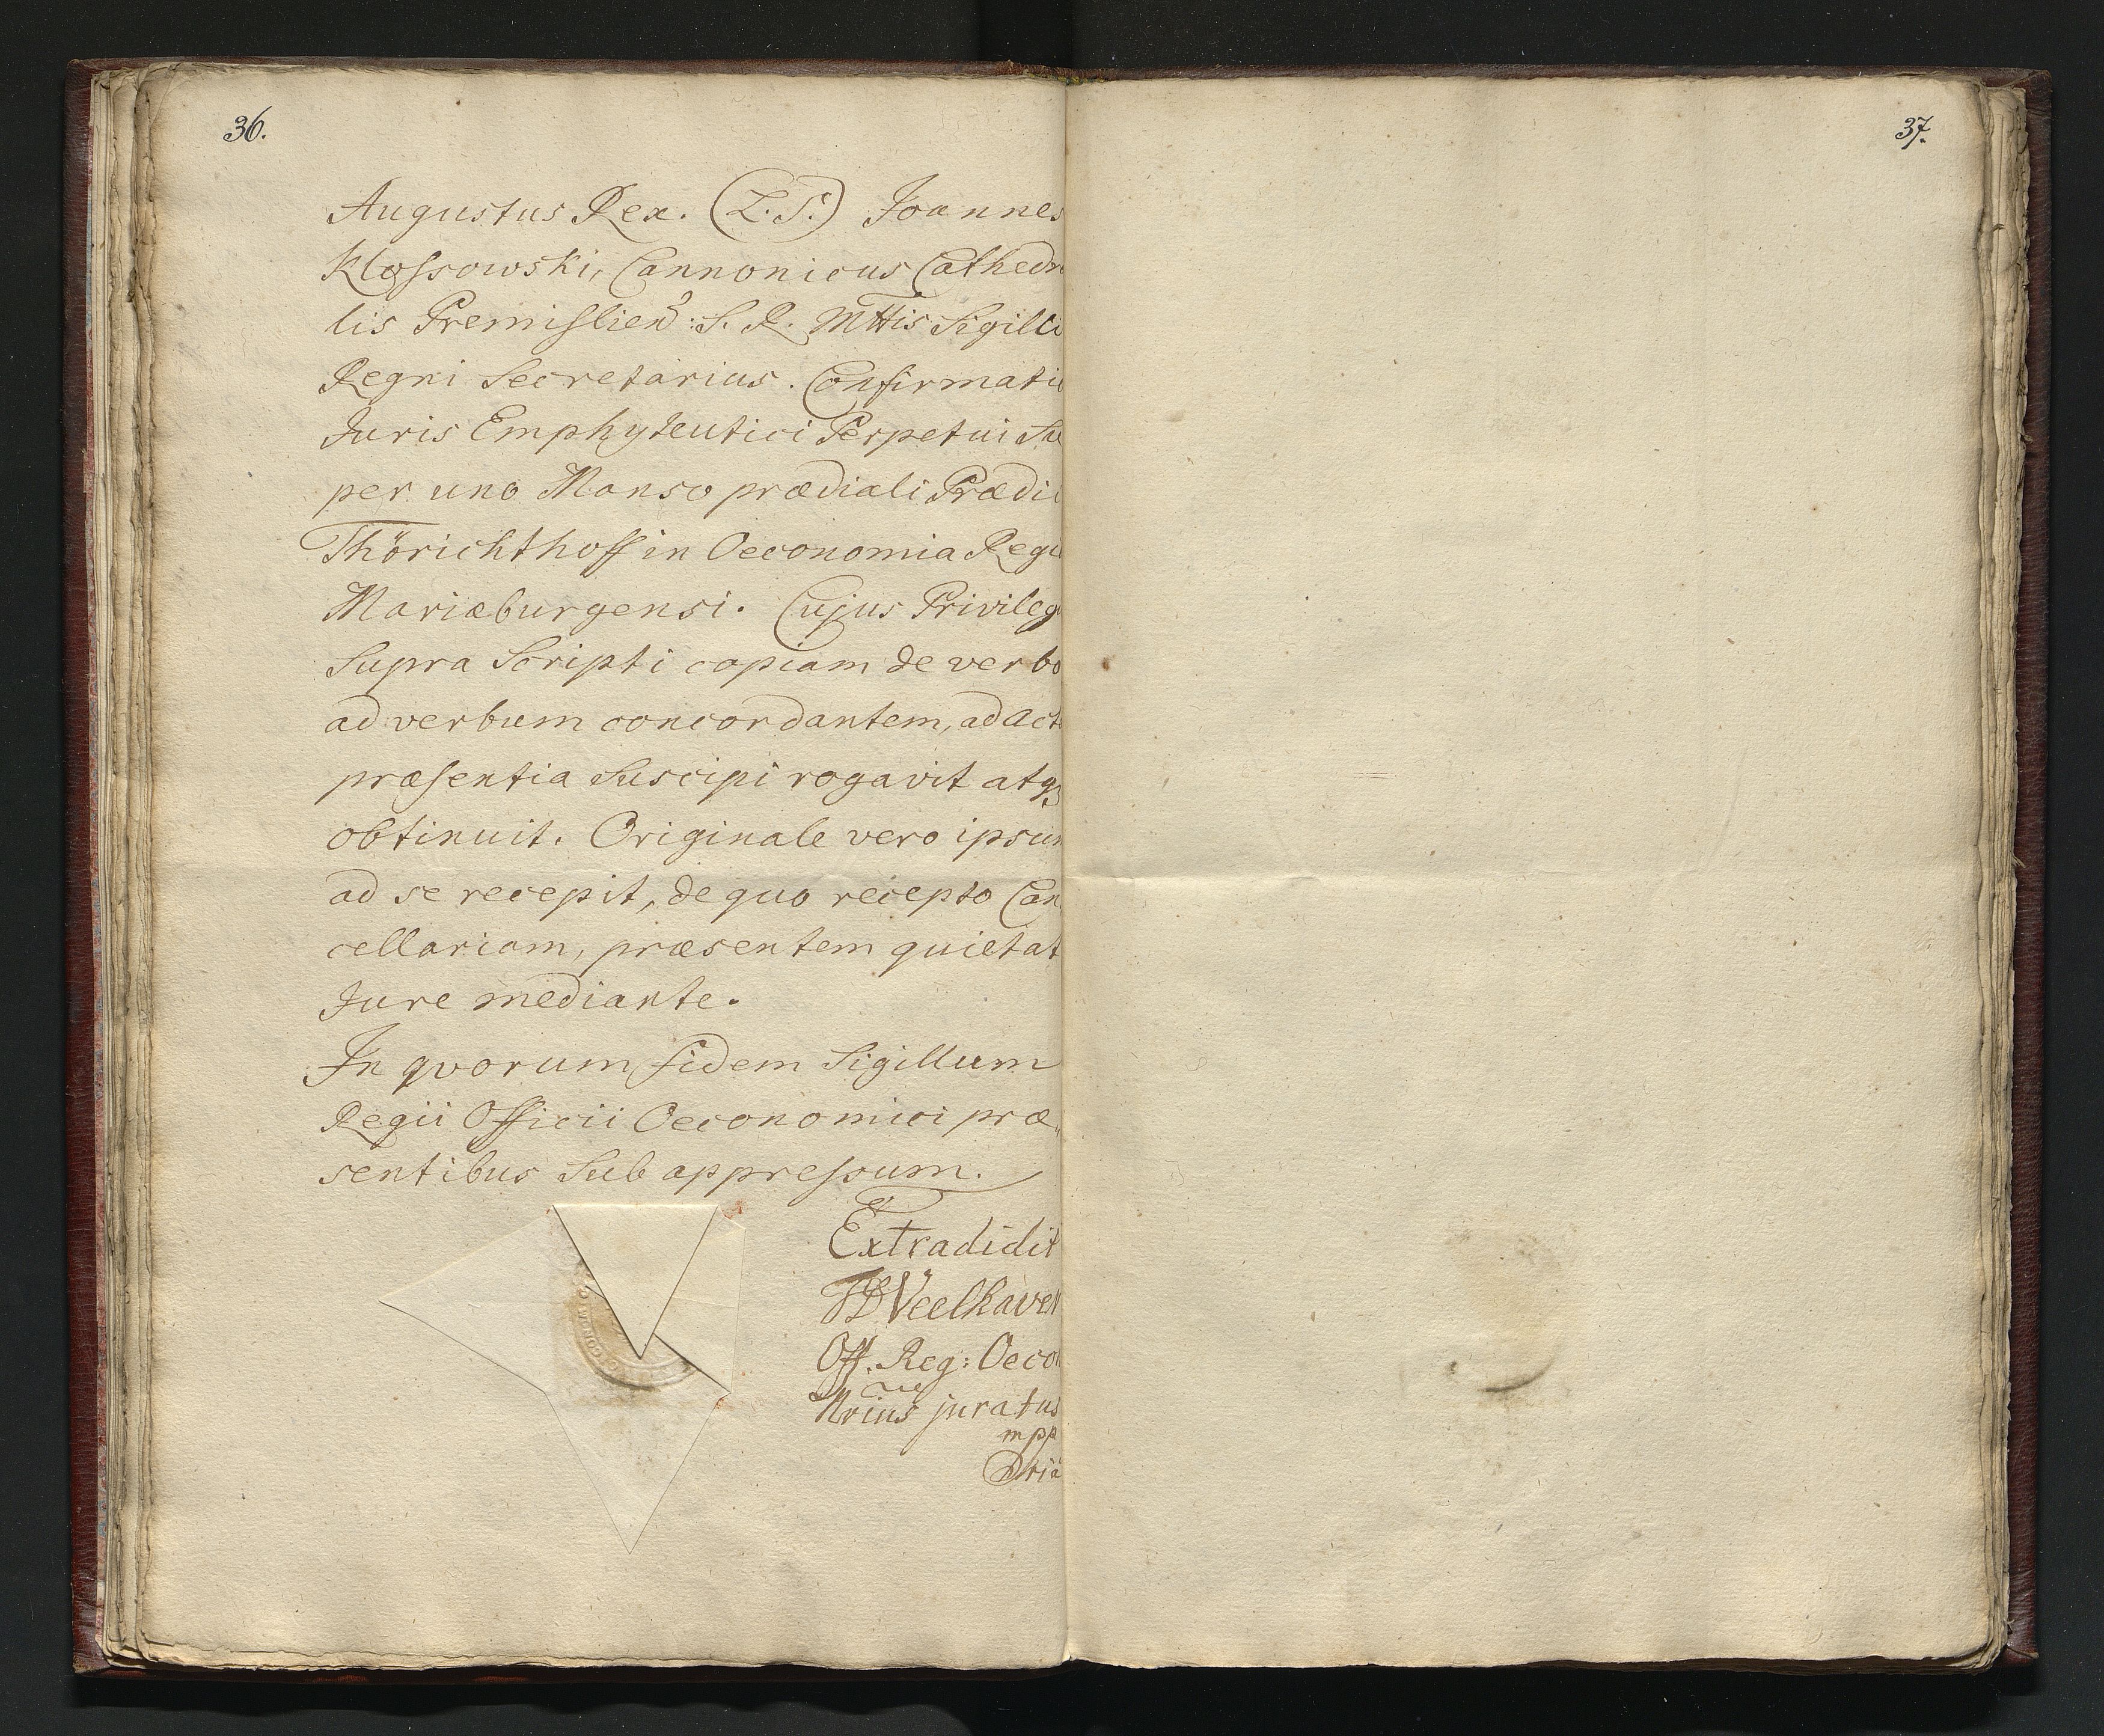 36.
Augustus Rex. (L.S.) Joannes
Klossowski, Cannonicus Cathedra
lis Premislien: S. R. Mttis Sigilli
Regni Secretarius. Confirmatio
Juris Emphyteutici Perpetui Su
per uno Manso prædiali Prædii
Thörichthoff in Oeconomia Regia
Mariæburgensi. Cujus Privilegii
Supra Scripti copiam de verbo
ad verbum concordantem, ad Acta
præsentia Suscipi rogavit atq
obtinuit. Originale vero ipsum
ad se recepit, de quo recepto Can
cellariam, præsentem quietat
Jure mediante.
In qvorum fidem Sigillum
Regii Officii Oeconomici præ„
sentibus Sub appressum.
Extradidit
Veelhaven
Off. Reg: Oecon
Nrius juratus
mpp
37.